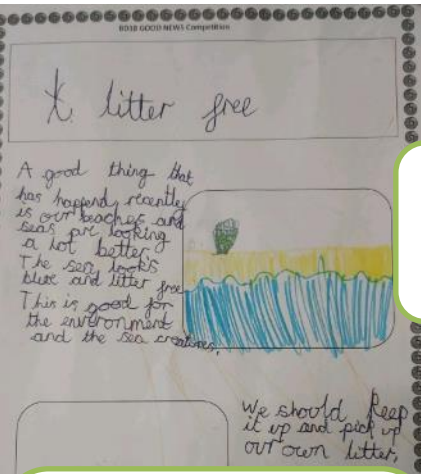 BDSB GOOD NEWS Competition
litter free
A good thing that
has happend recently
is our beaches and
seas are looking
a lot better
The sea looks
blue and litter free
This is good for
the environment
and the sea creatures.
We should keep
it up and pick up
our own litter.